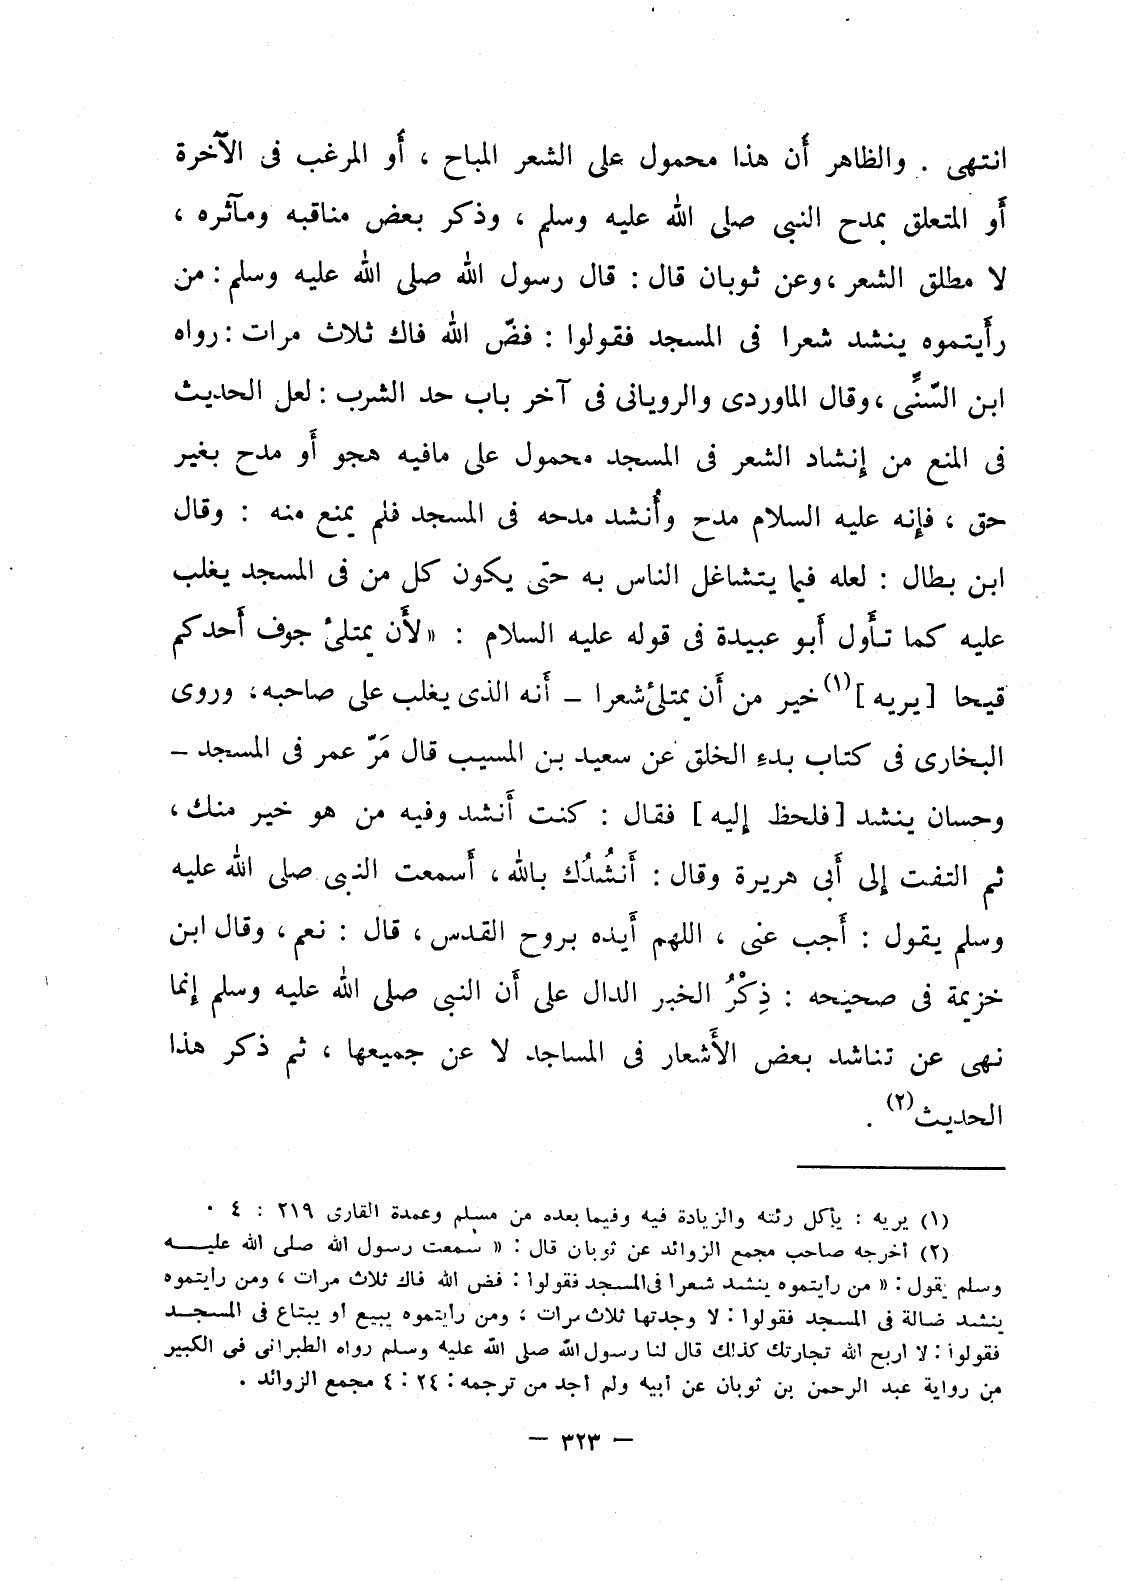 انتهى . والظاهر أَن هذا محمول على الشعر المباح ، أَو المرغب فى الآخرة
أَو المتعلق بمدح النبى صلى الله عليه وسلم ، وذكر بعض مناقبه ومآثره ،
لا مطلق الشعر ، وعن ثوبان قال : قال رسول الله صلى الله عليه وسلم : من
رأَيتموه ينشد شعرا فى المسجد فقولوا : فضّ الله فاك ثلاث مرات : رواه
ابن السّنِّى ، وقال الماوردى والرويانى فى آخر باب حد الشرب : لعل الحديث
فى المنع من إنشاد الشعر فى المسجد محمول على مافيه هجو أَو مدح بغير
حق ، فإنه عليه السلام مدح وأُنشد مدحه فى المسجد فلم يمنع منه : وقال
ابن بطال : لعله فيما يتشاغل الناس به حتى يكون كل من فى المسجد يغلب
عليه كما تأَول أَبو عبيدة فى قوله عليه السلام : « لأَن يمتلئ جوف أَحدكم
قيحا [ يريه ] (١) خير من أَن يمتلئ شعرا – أَنه الذى يغلب على صاحبه ، وروى
البخارى فى كتاب بدء الخلق عن سعيد بن المسيب قال مَرّ عمر فى المسجد –
وحسان ينشد [ فلحظ إليه ] فقال : كنت أَنشد وفيه من هو خير منك ،
ثم التفت إلى أَبى هريرة وقال : أَنشُدُك بالله ، أَسمعت النبى صلى الله عليه
وسلم يقول : أَجب عنى ، اللهم أَيده بروح القدس ، قال : نعم ، وقال ابن
خزيمة فى صحيحه : ذِكْرُ الخبر الدال على أَن النبى صلى الله عليه وسلم إنما
نهى عن تناشد بعض الأَشعار فى المساجد لا عن جميعها ، ثم ذكر هذا
الحديث (٢) .
(١) يريه : يأكل رئته والزيادة فيه وفيما بعده من مسلم وعمدة القارى ٢١٩ : ٤ .
(٢) أخرجه صاحب مجمع الزوائد عن ثوبان قال : « سمعت رسول الله صلى الله عليه
وسلم يقول : « من رايتموه ينشد شعرا فى المسجد فقولوا : فض الله فاك ثلاث مرات ، ومن رايتموه
ينشد ضالة فى المسجد فقولوا : لا وجدتها ثلاث مرات ، ومن رايتموه يبيع او يبتاع فى المسجد
فقولوا : لا اربح الله تجارتك كذلك قال لنا رسول الله صلى الله عليه وسلم رواه الطبرانى فى الكبير
من رواية عبد الرحمن بن ثوبان عن أبيه ولم أجد من ترجمه : ٢٤ : ٤ مجمع الزوائد .
– ٣٢٣ –